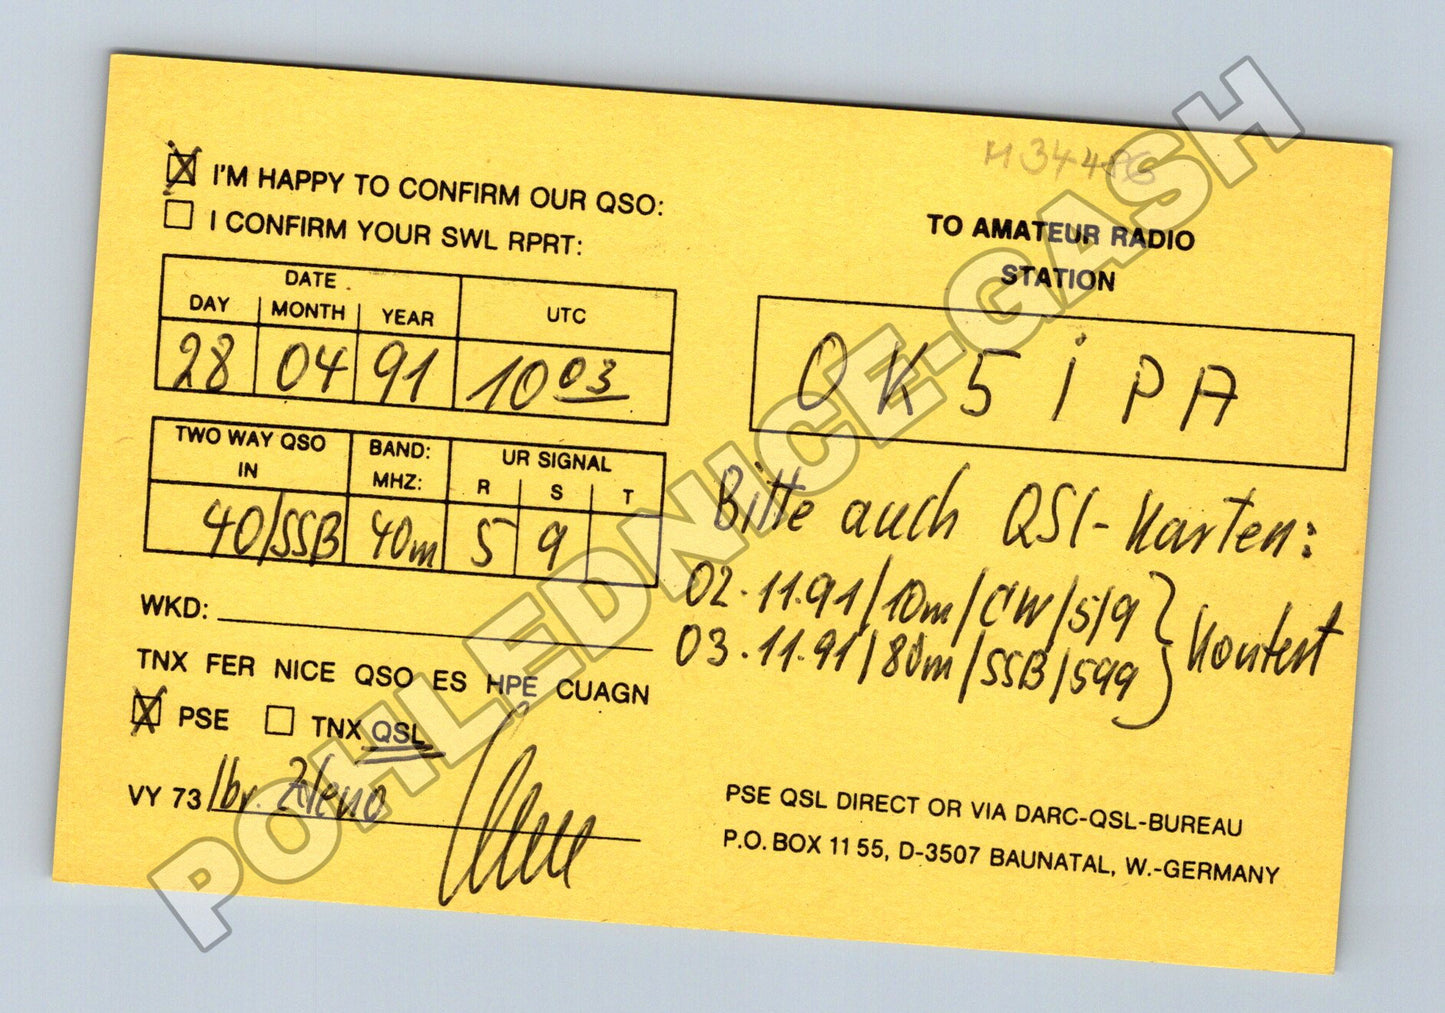 I'M HAPPY TO CONFIRM OUR QSO:
I CONFIRM YOUR SWL RPRT:
DATE
DAY MONTH YEAR UTC
28 04 91 1003
TWO WAY QSO IN BAND: MHZ: UR SIGNAL
R S T
40/SSB 40m 5 9
WKD:
TNX FER NICE QSO ES HPE CUAGN
PSE TNX QSL
VY 73 lbr.
TO AMATEUR RADIO
STATION
OK5iPA
Bitte auch QSL-Karten:
02.11.91/10m/CW/5/9
03.11.91/80m/SSB/599
Kontest
PSE QSL DIRECT OR VIA DARC-QSL-BUREAU
P.O. BOX 11 55, D-3507 BAUNATAL, W.-GERMANY
POHLEDNICE-GASH